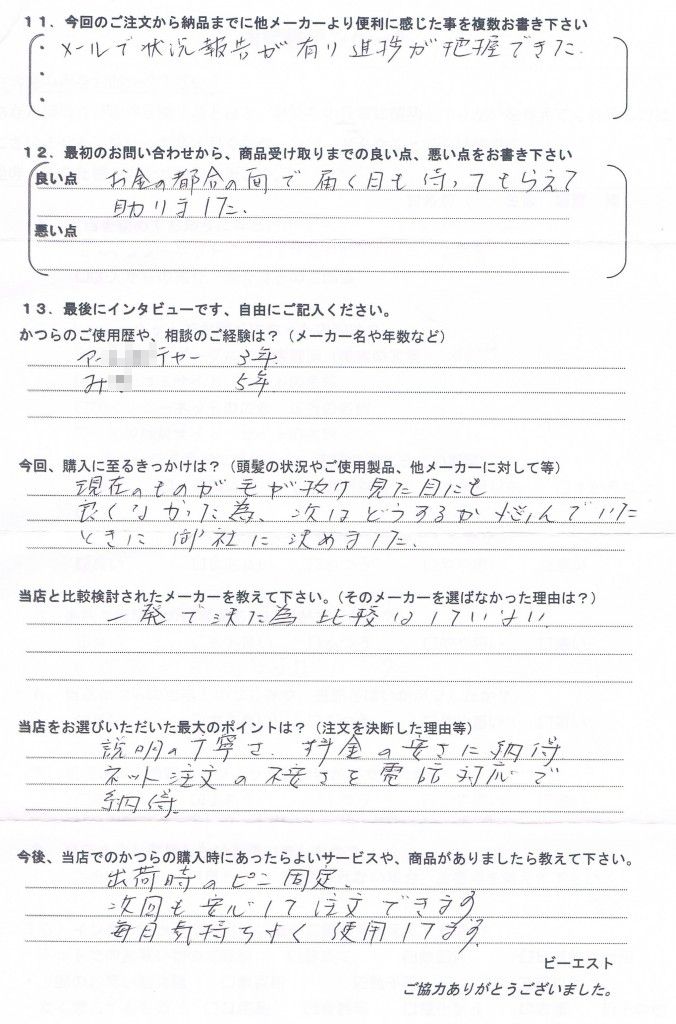 １１．今回のご注文から納品までに他メーカーより便利に感じた事を複数お書き下さい
・メールで状況報告が有り進捗が把握できた.
・
・
１２．最初のお問い合わせから、商品受け取りまでの良い点、悪い点をお書き下さい
良い点 お金の都合の面で届く日も待ってもらえて
助りました.
悪い点
１３．最後にインタビューです、自由にご記入ください。
かつらのご使用歴や、相談のご経験は？（メーカー名や年数など）
アー テャー 3年.
み 5年.
今回、購入に至るきっかけは？（頭髪の状況やご使用製品、他メーカーに対して等）
現在のものが毛が抜け見た目にも
良くなかった為、次はどうするか悩んでいた
ときに御社に決めました.
当店と比較検討されたメーカーを教えて下さい。（そのメーカーを選ばなかった理由は？）
一発で決た為比較はしていない.
当店をお選びいただいた最大のポイントは？（注文を決断した理由等）
説明の丁寧さ. 料金の安さに納得
ネット注文の不安さを電話対応で
納得.
今後、当店でのかつらの購入時にあったらよいサービスや、商品がありましたら教えて下さい。
出荷時のピン固定、
次回も安心して注文できます
毎月気持ちよく使用してます.
ビーエスト
ご協力ありがとうございました。